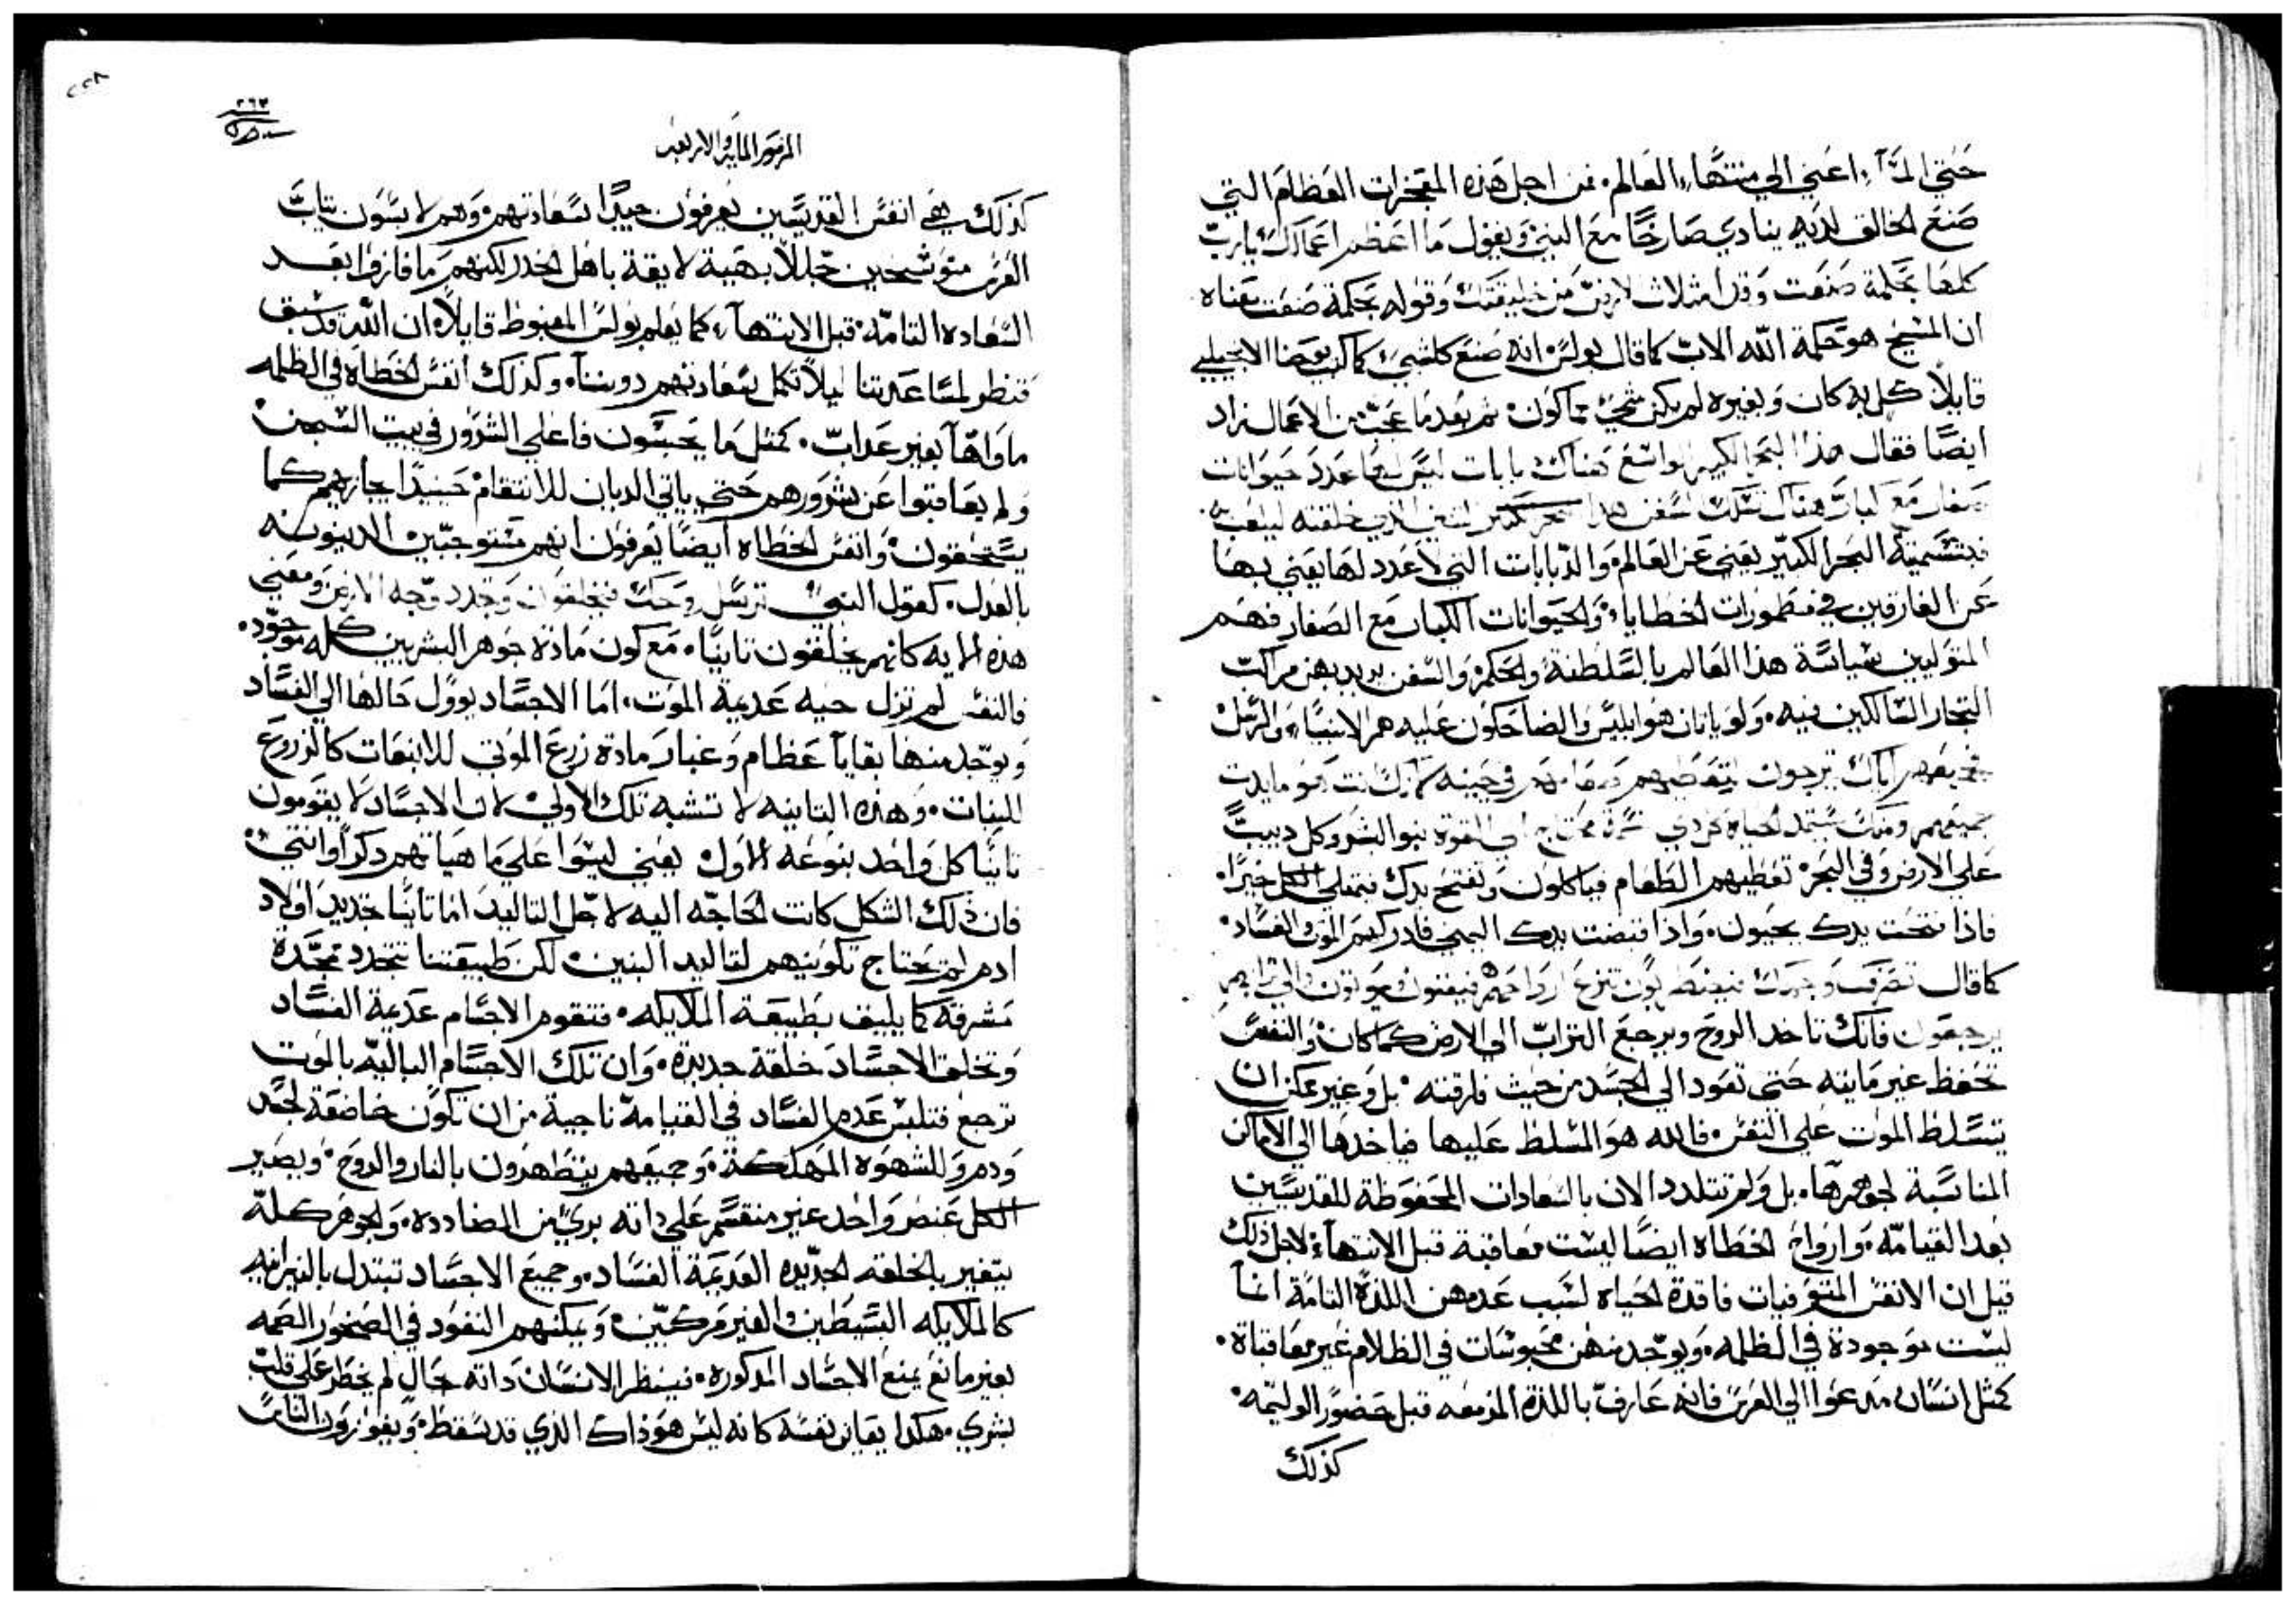 حتي المسآ، اعني الي منتهاء العالم. فمن اجل هذه المعجزات العظام التي
صنع الخالق لديه ينادي صارخًا مع النبي ويقول ما اعظم اعمالك يا رب
كلها بحكمة صنعت وقد امتلات الارض من خليقتك وقوله بحكمة صنعت معناه
ان المسيح هو حكمة الله الاب كما قال بولس انه صنع كلشي كما كتب يوحنا الانجيلي
قايلاً كل به كان وبغيره لم يكن شي مما كون. ثم بعد ما عجب من الاعمال زاد
ايضًا فقال هذا البحر الكبير الواسع هناك دبابات ليس لها عدد حيوانات
صغار مع كبار هناك تسلك السفن هذا التنين الذي خلقته ليلعب به.
فبتسمية البحر الكبير يعني عن العالم. والدبابات التي لا عدد لها يعني بها
عن الغارقين في مطمورات الخطايا. والحيوانات الكبار مع الصغار فهم
المتوليين سياسة هذا العالم بالسلطنة والحكم. والسفن يريد بهن مراكب
التجار السالكين فيه. ولوياتان هو ابليس والضاحكون عليه هم الانبيا، والرسل
جميعهم اياك يرجون لتعطيهم طعامهم في حينه
جميعهم ومنك يستمد الحياه كل ذي محتاج الي القوة بنو البشر وكل دبيب
علي الارض وفي البحر. تعطيهم الطعام فياكلون، وتفتح يدك فيمتلي الكل خيرًا.
فاذا فتحت يدك يحيون. واذا قبضت يدك اليمني فادركهم الموت والفساد.
كما قال تصرف وجهك فيضطربون تنزع ارواحهم فيفنون ويموتون والي ترابهم
يرجعون فانك تاخد الروح ويرجع التراب الي الارض كما كان. والنفس
تحفظ غير مايته حتي تعود الي الجسد من حيث فارقته. بل وغير ممكن ان
يتسلط الموت علي النفس. فالله هو المسلط عليها فياخدها الي الاماكن
المناسبة لجوهرها. بل ولم تتلدد الان بالسعادات المحفوظة للقديسين
بعد القيامة. وارواح الخطاه ايضًا ليست معاقبة قبل الانتهاء. لاجل ذلك
قيل ان الانفس المتوفيات فاقدة الحياه لسبب عدمهن اللدة التامة انها
ليست موجودة في الظلمه. ويوجد منهن محبوسات في الظلام غير معاقباة.
كمثل انسان مدعوا الي العرس فانه عارف باللدة المزمعه قبل حضور الوليمه.
كذلك
٣٦٣
المزمور المايه والاربعه
كذلك هي انفس القديسين يعرفون جيدًا بسعادتهم. وهم لابسون تياب
العرس متوشحين حللاً بهية لايقة باهل الخدر لكنهم ما فازوا بعد
السعاده التامه قبل الانتهآ، كما يعلم بولس المغبوط قايلاً. ان الله قد سبق
فنظر لمساعدتنا ليلا تكمل سعادتهم دوننا. وكذلك انفس الخطاه في الظلمه
ماواها بغير عداب. كمثل ما يحبسون فاعلي الشرور في بيت السجن
ولم يعاقبوا عن شرورهم حتي ياتي الديان للانتقام حينيدًا يجازيهم كما
يستحقون. وانفس الخطاه ايضًا يعرفون انهم مستوجبين الدينونه
بالعدل. كقول النبي ترسل روحك فيخلقون. وتجدد وجه الارض ومعني
هذه الايه كانهم يخلقون تانيًا. مع كون مادة جوهر البشريين كله موجود.
فالنفس لم تزل حيه عديمة الموت. اما الاجساد يوول حالها الي الفساد
ويوجد منها بقايا عظام وغبار مادة زرع الموتي للانبعات كالزروع
للنبات. وهذه التانيه لا تشبه تلك الاولي. لان الاجساد لا يقومون
تانيًا كل واحد بنوعه الاول. يعني ليسوا علي ما هياتهم دكرًا وانتي.
فان ذلك الشكل كانت الحاجه اليه لاجل التاليد. اما تانيًا تجديد اولاد
ادم لم يحتاج تكوينهم لتاليد البنين. لكن طبيعتنا تتجدد ممجدة
مشرفة كما يليق بطبيعة الملايكه. فتقوم الاجسام عديمة الفساد
وتخلق الاجساد خلقة جديدة. وان تلك الاجسام الباليه بالموت
ترجع فتلبس عدم الفساد في القيامة ناجية من ان تكون خاضعة لجسد
ودم وللشهوه المهلكة. وجميعهم يتطهرون بالنار والروح. ويصير
الكل عنصر واحد غير منقسم علي داته بري من المضادده. والجوهر كله
يتغير بالخلقه الجديده العديمة الفساد. وجميع الاجساد تبتدل بالنيرانيه
كالملايكه البسيطين والغير مركبين. ويمكنهم النفود في الصخور الصمه
بغير مانع يمنع الاجساد المدكوره. فينظر الانسان داته حال لم يخطر علي قلب
بشري. هكدا يعاين نفسه كانه ليس هو ذاك الذي قد سقط.